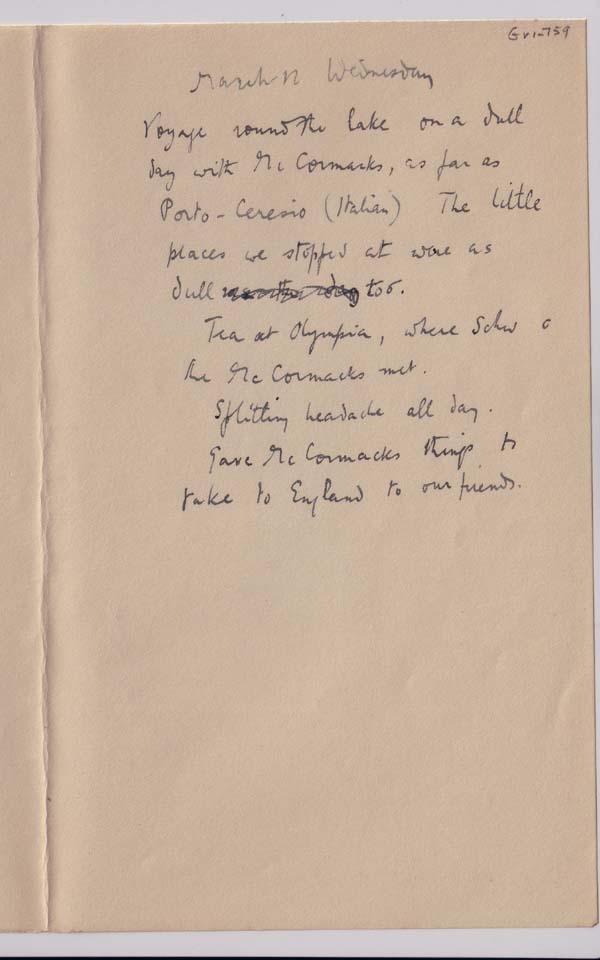 March 12 Wednesday
Voyage round the lake on a dull
day with McCormacks, as far as
Porto-Ceresio (Italian) The little
places we stopped at were as
dull too.
Tea at Olympia, where Schw
the McCormacks met.
Splitting headache all day.
Gave McCormacks things to
take to England to our friends.